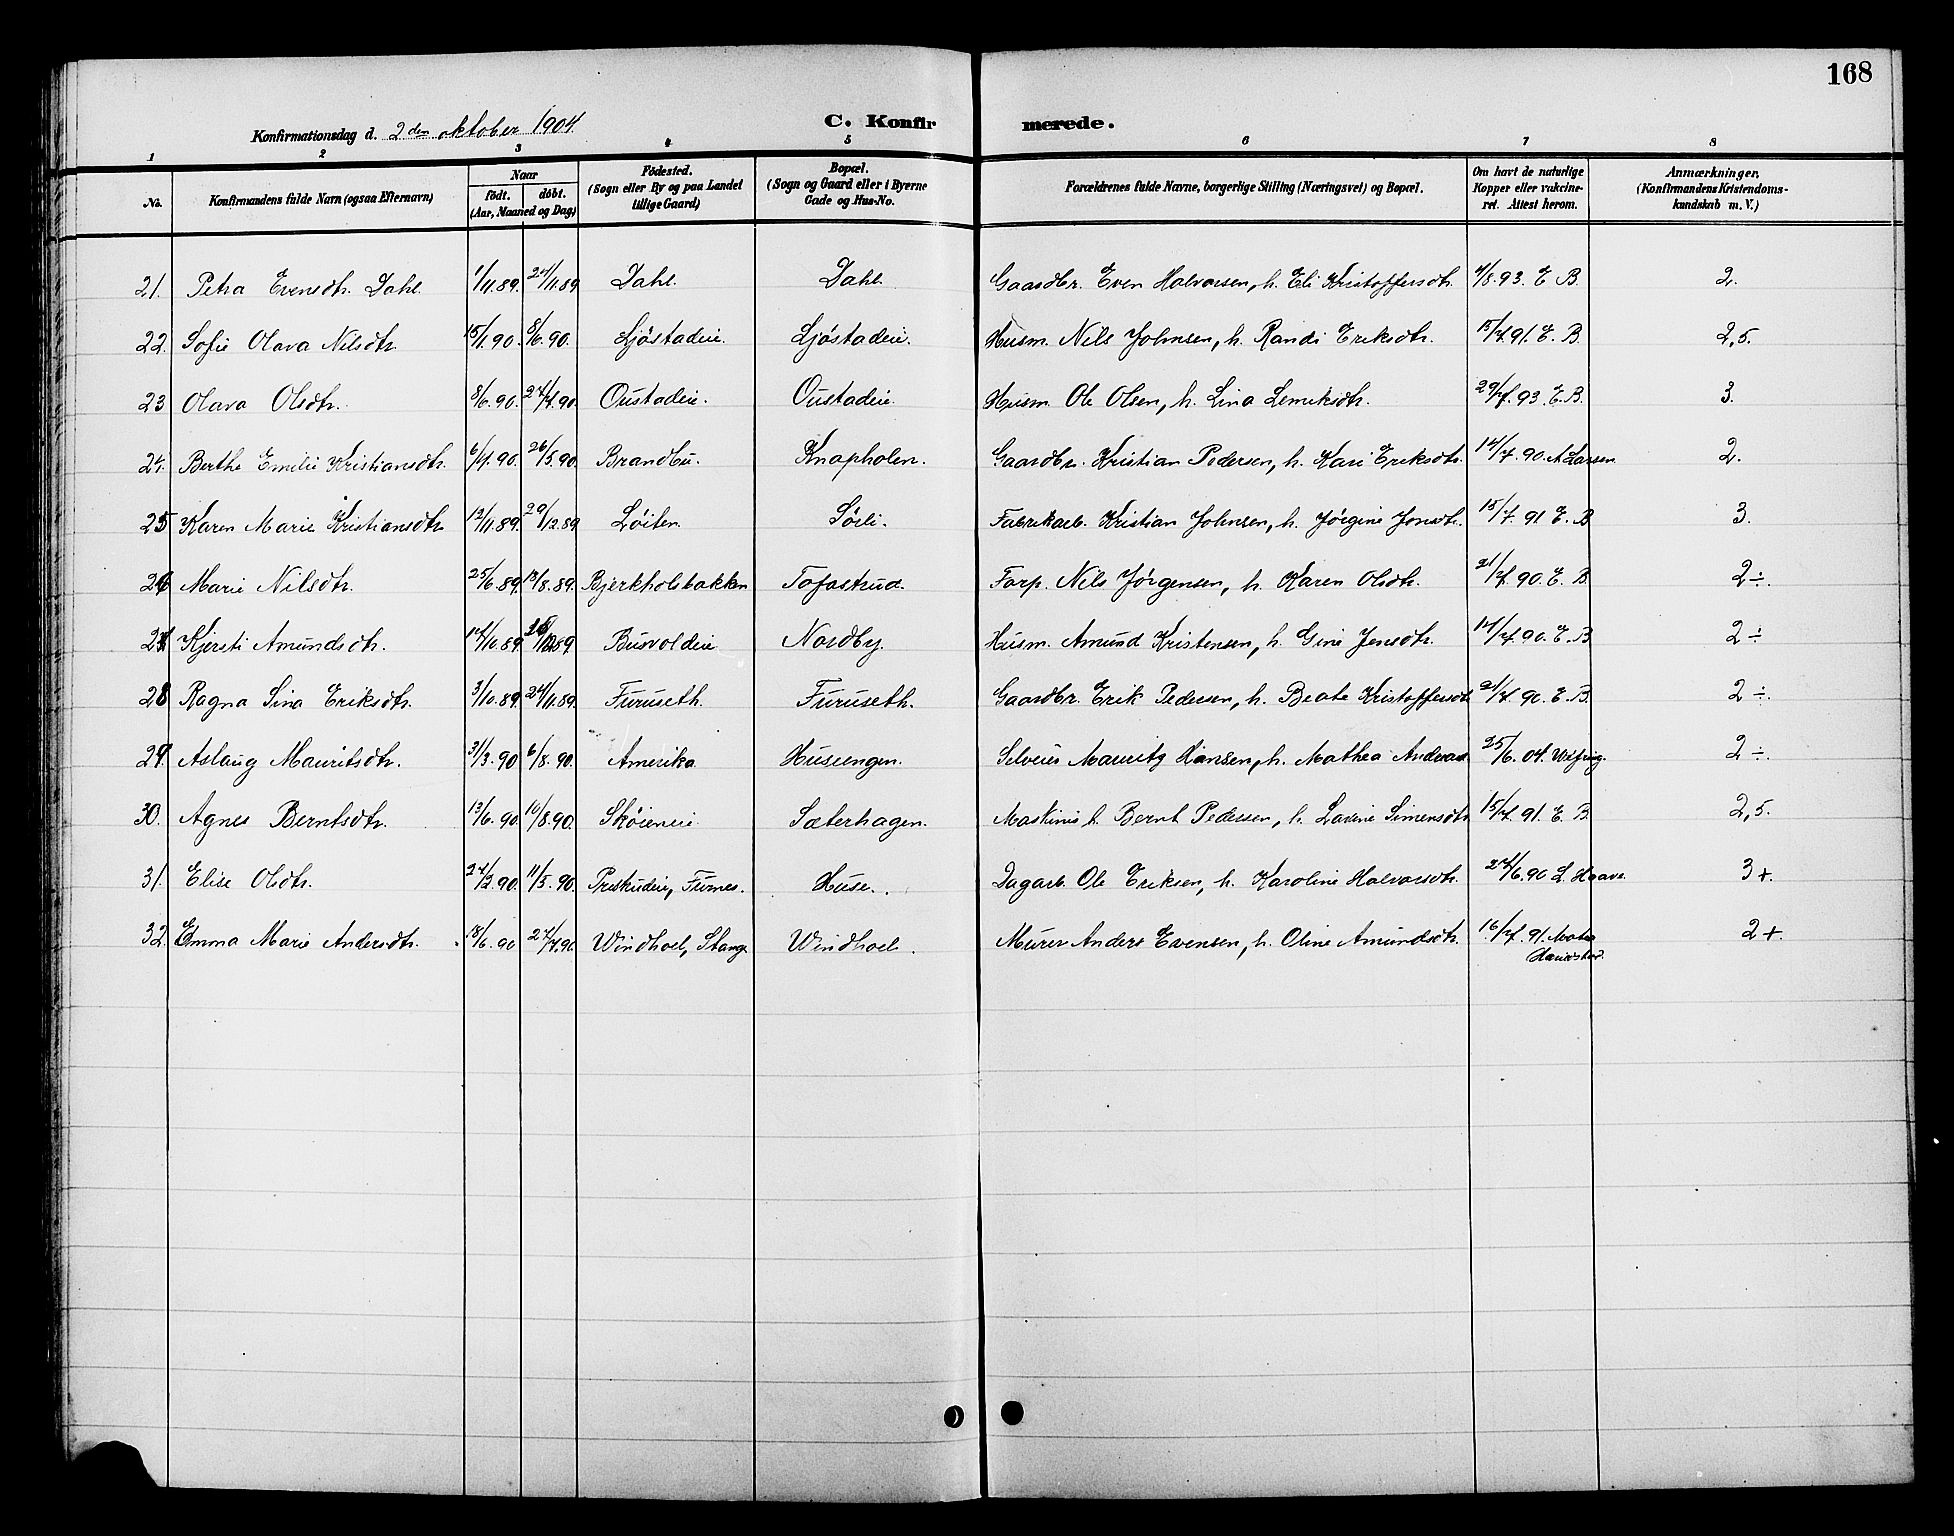 168
Konfirmationsdag d. 2den oktober 1904.
C. Konfirmerede.
1 2 3 4 5 6 7 8
No. | Konfirmandens fulde Navn (ogsaa Efternavn) | Naar født. døbt. (Aar, Maaned og Dag) | Fødested. (Sogn eller By og paa Landet tillige Gaard) | Bopæl. (Sogn og Gaard eller i Byerne Gade og Hus-No. | Forældrenes fulde Navne, borgerlige Stilling (Næringsvei) og Bopæl. | Om havt de naturlige Kopper eller vakcineret. Attest herom. | Anmærkninger. (Konfirmandens Kristendomskundskab m. V.)
21. Petra Evensdtr. Dahl 1/11.89. 24/11.89 Dahl. Dahl. Gaardbr. Even Halvorsen, h. Eli Kristoffersdtr. 4/8.93. E B. 2.
22. Sofie Olava Nilsdtr. 15/1.90. 8/6.90. Ljøstadeie. Ljøstadeie. Husm. Nils Johnsen, h. Randi Eriksdtr. 15/7.91. E. B. 2,5.
23 Olava Olsdtr. 8/6.90. 27/7.90. Oustadeie. Oustadeie. Husm. Ole Olsen, h. Lina Lemiksdtr. 29/7.93. E. B. 3.
24. Berthe Emilie Kristiansdtr. 6/4.90. 26/5.90. Brandbu. Knapholen. Gaardbr. Kristian Pedersen, h. Kari Eriksdtr. 14/7.90. A Larsen 2.
25 Karen Marie Kristiansdtr 12/11.89. 29/12.89 Løiten Sørli. Fabrikarb. Kristian Johnsen, h. Jørgine Jonsdtr. 15/7.91 E. B 3.
26 Marie Nilsdtr. 25/6.89. 18/8.89. Bjerkholsbakken Tofastrud. Forp. Nils Jørgensen, h. Karen Olsdtr. 21/7.90. E. B 2÷.
27 Kjersti Amundsdtr. 14/10.89. 26/12.89 Busvoldeie Nordby. Husm. Amund Kristensen, h. Gine Jensdtr. 14/7.90. E. B 2÷
28 Ragna Lina Eriksdtr. 3/10.89. 24/11.89. Furuseth. Furuseth. Gaardbr. Erik Pedersen, h. Beate Kristoffersdtr 21/7.90. E. B. 2÷.
29 Aslaug Mauritsdtr. 31/3.90 6/8.90. Amerika Huseengen. Selveier Mauritz Hansen, h. Mathea Andersd 25/6.04. 2÷.
30. Agnes Berntsdtr. 13/6.90. 10/8.90. Skøieneie Sæterhagen. Maskinist Bernt Pedersen, h. Lavine Simensdtr 15/7.91. E. B 2,5.
31. Elise Olsdtr. 24/2.90. 11/5.90. Prestudeie, Furnes. Huse. Dagarb. Ole Eriksen, h. Karoline Halvorsdtr. 24/6.90 L. Haave 3+.
32. Emma Marie Andersdtr. 18/6.90 27/7.90. Windhoel, Stange Windhoel. Murer Anders Evensen, h. Oline Amundsdtr. 16/7.91.
2+.